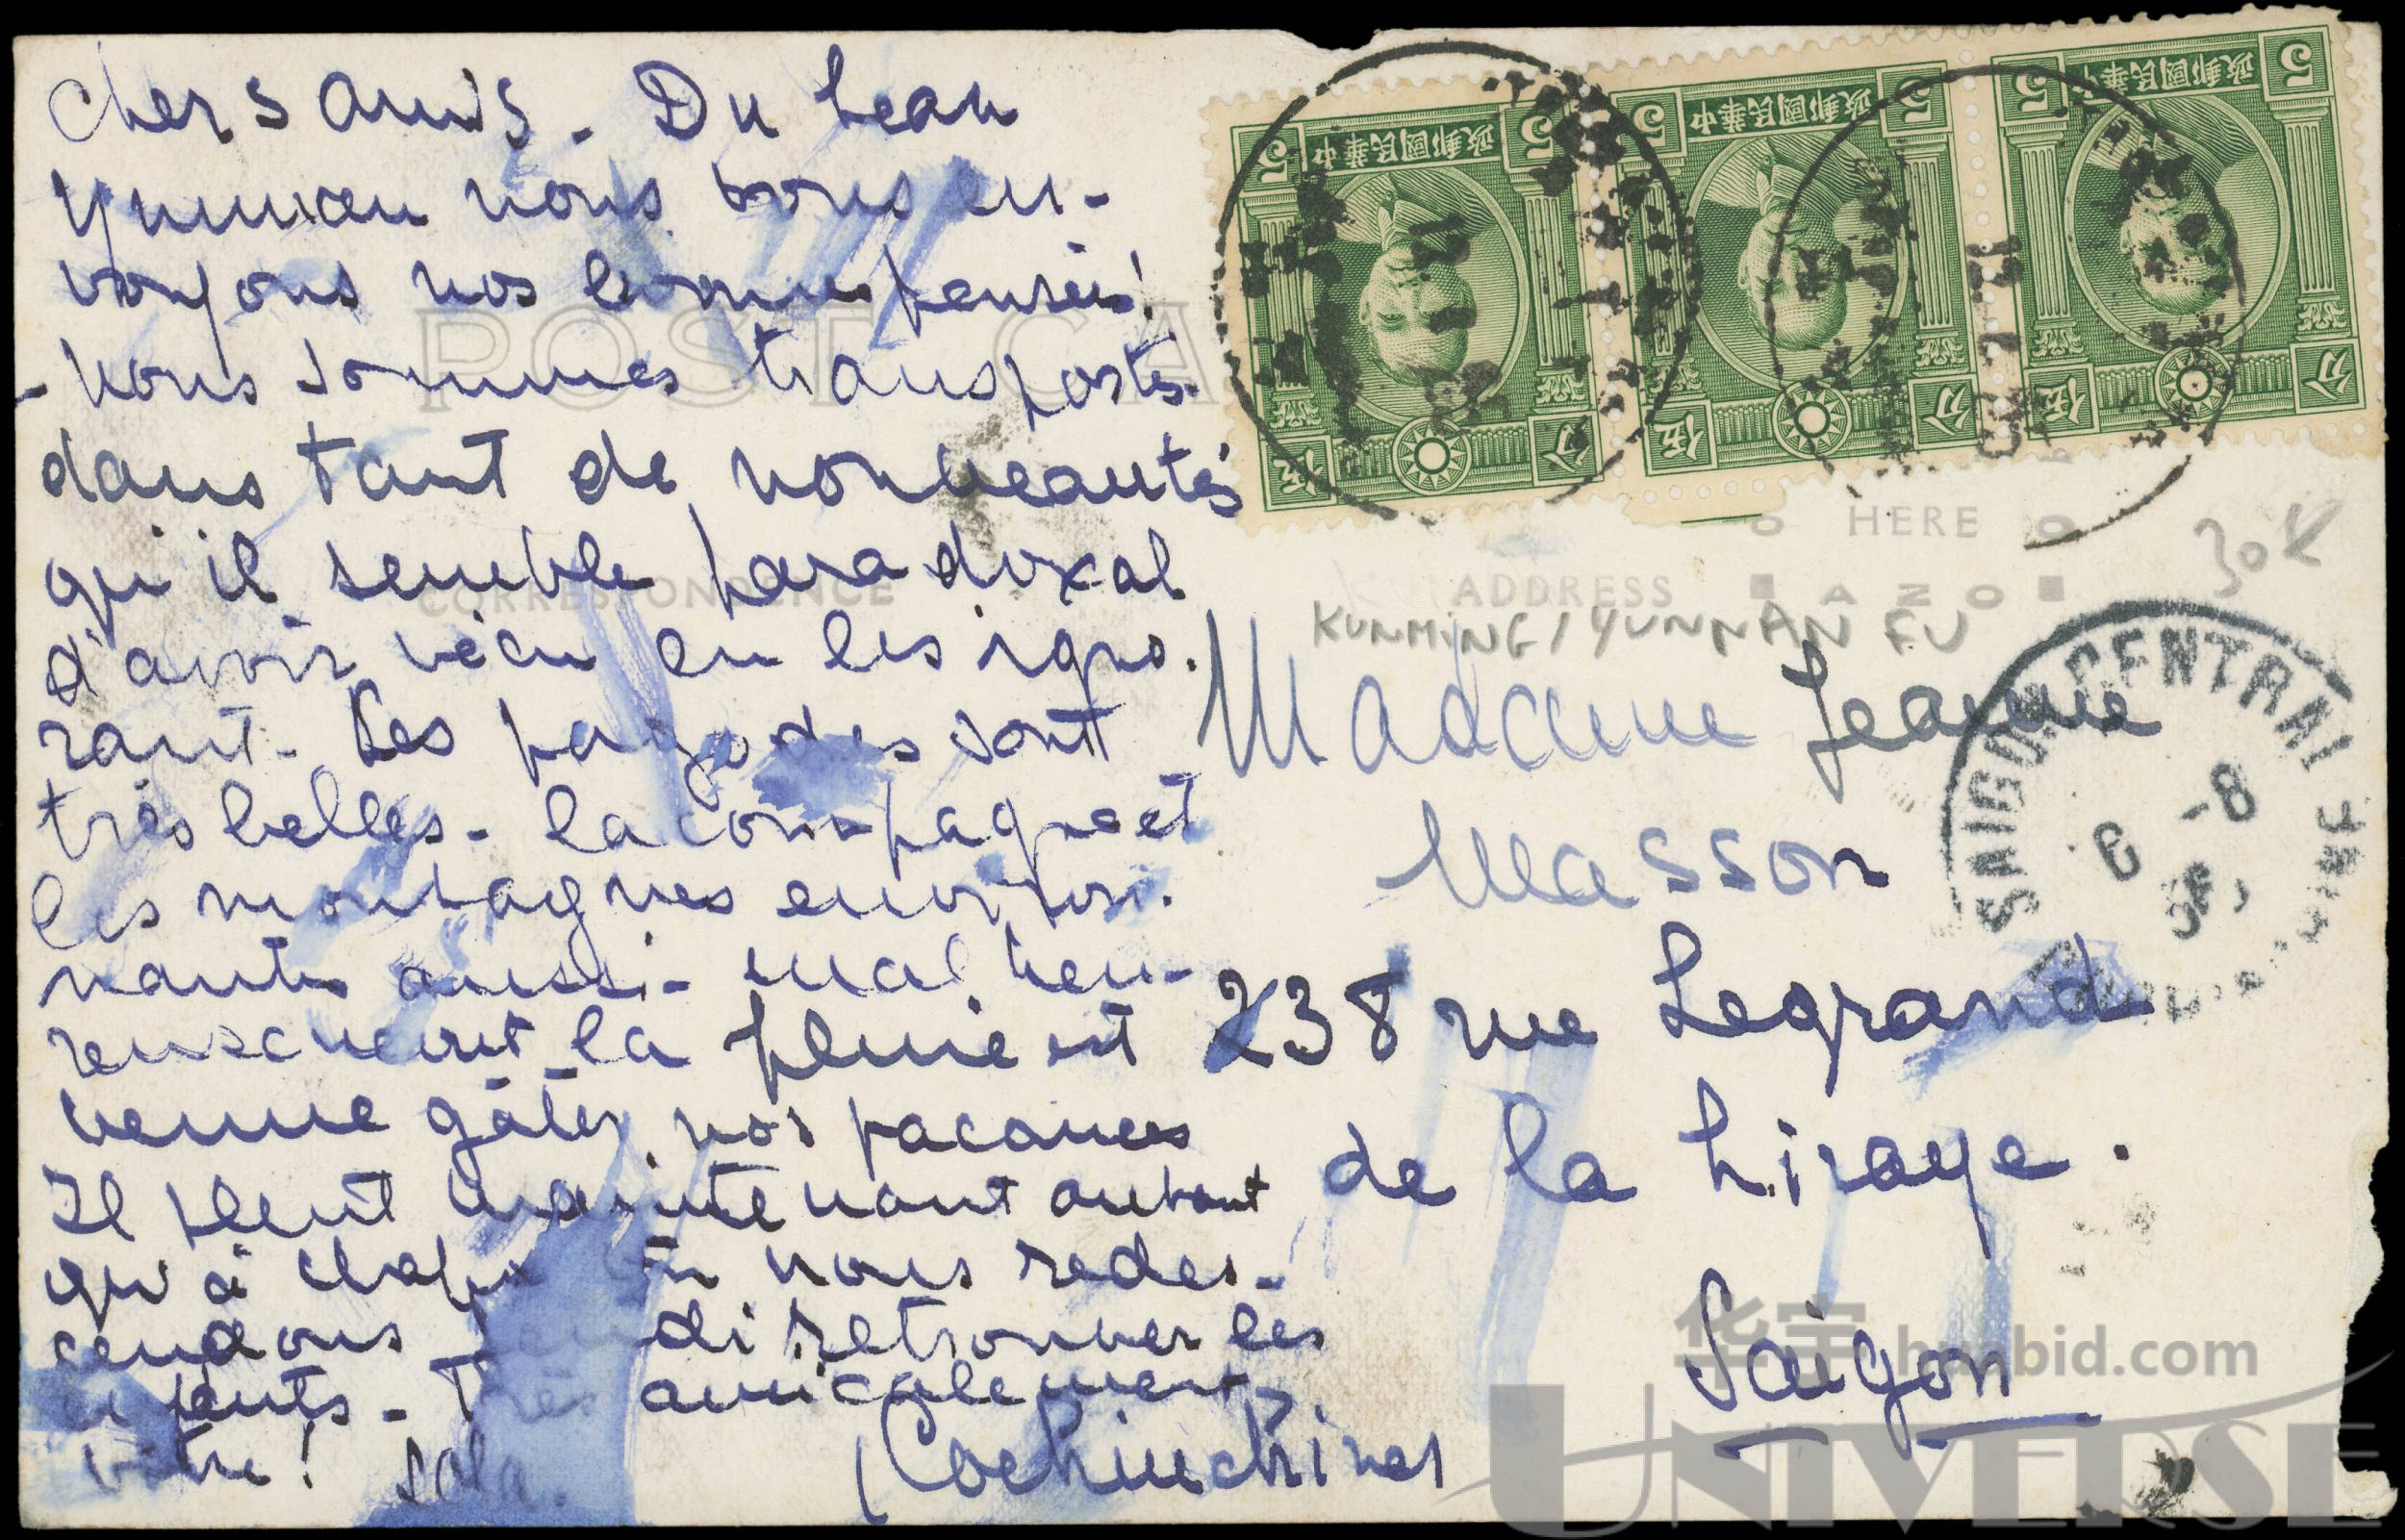 chers amis. Du beau
Yunnan nous vous en-
voyons nos bonnes pensées!
- Nous sommes transportés
dans tant de nouveautés
qu'il semble paradoxal
d'avoir vécu en les igno-
rant. Les pagodes sont
très belles - la campagne et
les montagnes environ-
nantes aussi - malheu-
reusement la pluie est
venue gâter nos vacances
Il pleut maintenant autant
qu'à Chapa nous redes-
cendons retrouver les
Très amicalement
vôtre!
(Cochinchine)
POST CA
CORRESPONDENCE
中華民國郵政
5 5
伍 分
中華民國郵政
5 5
伍 分
中華民國郵政
5 5
伍 分
HERE
ADDRESS
AZO
30K
KUNMING / YUNNAN FU
Madame Jeanne
Masson
238 rue Legrand
de la Liraye.
Saigon
SAIGON-CENTRAL
6 -8
华宇 huabid.com
UNIVERSE